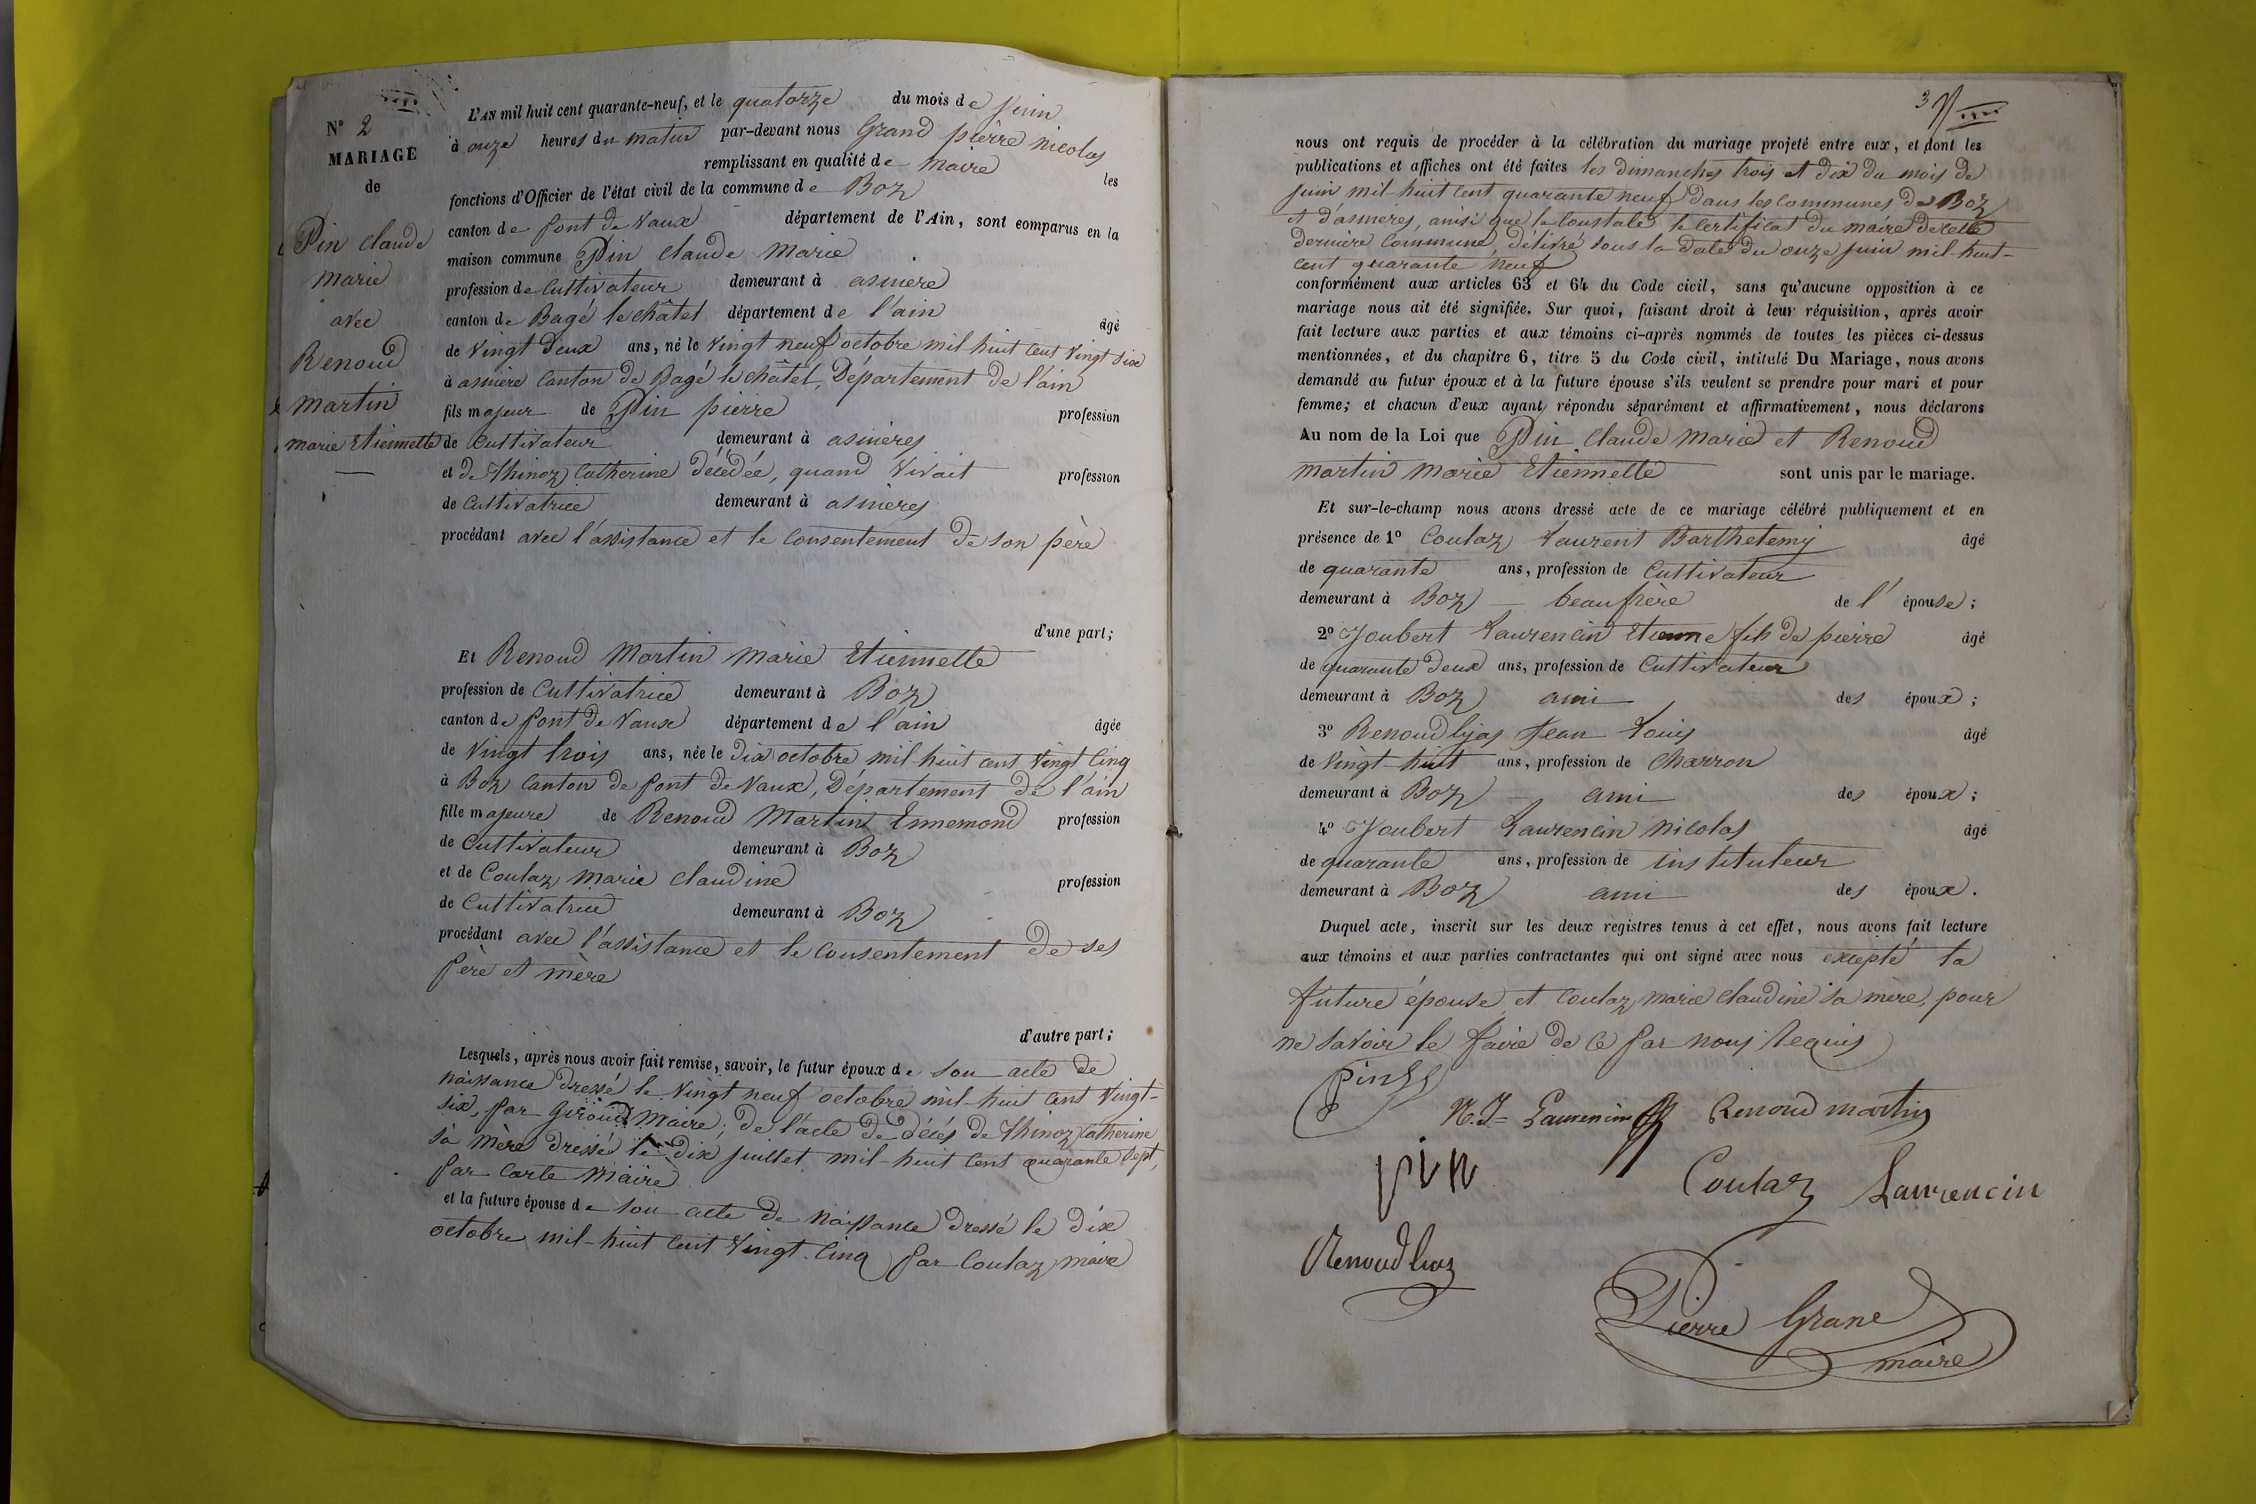 N° 2
MARIAGE
de
Pin claude
marie
avec
Renoud
martin
marie Etiennette
L'AN mil huit cent quarante-neuf, et le quatorze du mois de juin
à onze heures du matin par-devant nous Grand pierre nicolas
remplissant en qualité de maire les
fonctions d'Officier de l'état civil de la commune de Boz
canton de pont de Vaux département de l'Ain, sont comparus en la
maison commune Pin claude marie
profession de cultivateur demeurant à asniere
canton de Bagé le châtel département de l'ain âgé
de vingt deux ans, né le vingt neuf octobre mil huit cent vingt six
à asniere canton de Bagé le châtel, Département de l'ain
fils majeur de Pin pierre profession
de cultivateur demeurant à asnieres
et de Thinoz catherine décédée, quand vivait profession
de cultivatrice demeurant à asnieres
procédant avec l'assistance et le consentement de son père
d'une part;
Et Renoud Martin marie Etiennette
profession de cultivatrice demeurant à Boz
canton de pont de Vaux département de l'ain âgée
de vingt trois ans, née le dix octobre mil huit cent vingt cinq
à Boz canton de pont de Vaux, Département de l'ain
fille majeure de Renoud Martin Ennemond profession
de cultivateur demeurant à Boz
et de Coulaz marie claudine profession
de cultivatrice demeurant à Boz
procédant avec l'assistance et le consentement de ses
père et mère
d'autre part;
Lesquels, après nous avoir fait remise, savoir, le futur époux de son acte de
naissance dressé le vingt neuf octobre mil huit cent vingt-
six, par Giroud Maire; de l'acte de décès de Thinoz catherine
sa mère dressé le dix juillet mil-huit cent quarante sept,
par carte maire
et la future épouse de son acte de naissance dressé le dix
octobre mil-huit cent vingt-cinq par Coulaz maire
3
nous ont requis de procéder à la célébration du mariage projeté entre eux, et dont les
publications et affiches ont été faites les dimanches trois et dix du mois de
juin mil huit cent quarante neuf dans les communes de Boz
et d'asnieres, ainsi que le constate le certificat du maire de cette
derniere commune, délivré sous la date du onze juin mil-huit-
cent quarante neuf
conformément aux articles 63 et 64 du Code civil, sans qu'aucune opposition à ce
mariage nous ait été signifiée. Sur quoi, faisant droit à leur réquisition, après avoir
fait lecture aux parties et aux témoins ci-après nommés de toutes les pièces ci-dessus
mentionnées, et du chapitre 6, titre 5 du Code civil, intitulé Du Mariage, nous avons
demandé au futur époux et à la future épouse s'ils veulent se prendre pour mari et pour
femme; et chacun d'eux ayant répondu séparément et affirmativement, nous déclarons
Au nom de la Loi que Pin claude marie et Renoud
martin marie Etiennette sont unis par le mariage.
Et sur-le-champ nous avons dressé acte de ce mariage célébré publiquement et en
présence de 1° Coulaz Laurent Barthelemy âgé
de quarante ans, profession de cultivateur
demeurant à Boz beaufrère de l'épouse;
2° Joubert Laurencin Etienne fils de pierre âgé
de quarante deux ans, profession de cultivateur
demeurant à Boz ami des époux;
3° Renoud lyas Jean Louis âgé
de vingt-huit ans, profession de charron
demeurant à Boz ami des époux;
4° Joubert Laurencin nicolas âgé
de quarante ans, profession de instituteur
demeurant à Boz ami des époux.
Duquel acte, inscrit sur les deux registres tenus à cet effet, nous avons fait lecture
aux témoins et aux parties contractantes qui ont signé avec nous excepté la
future épouse et Coulaz marie claudine sa mère, pour
ne savoir le faire de ce par nous requis
Pin
N. J= Laurencin Renoud martin
pin
Coulaz Laurencin
Renoud lias
Pierre Grand
maire